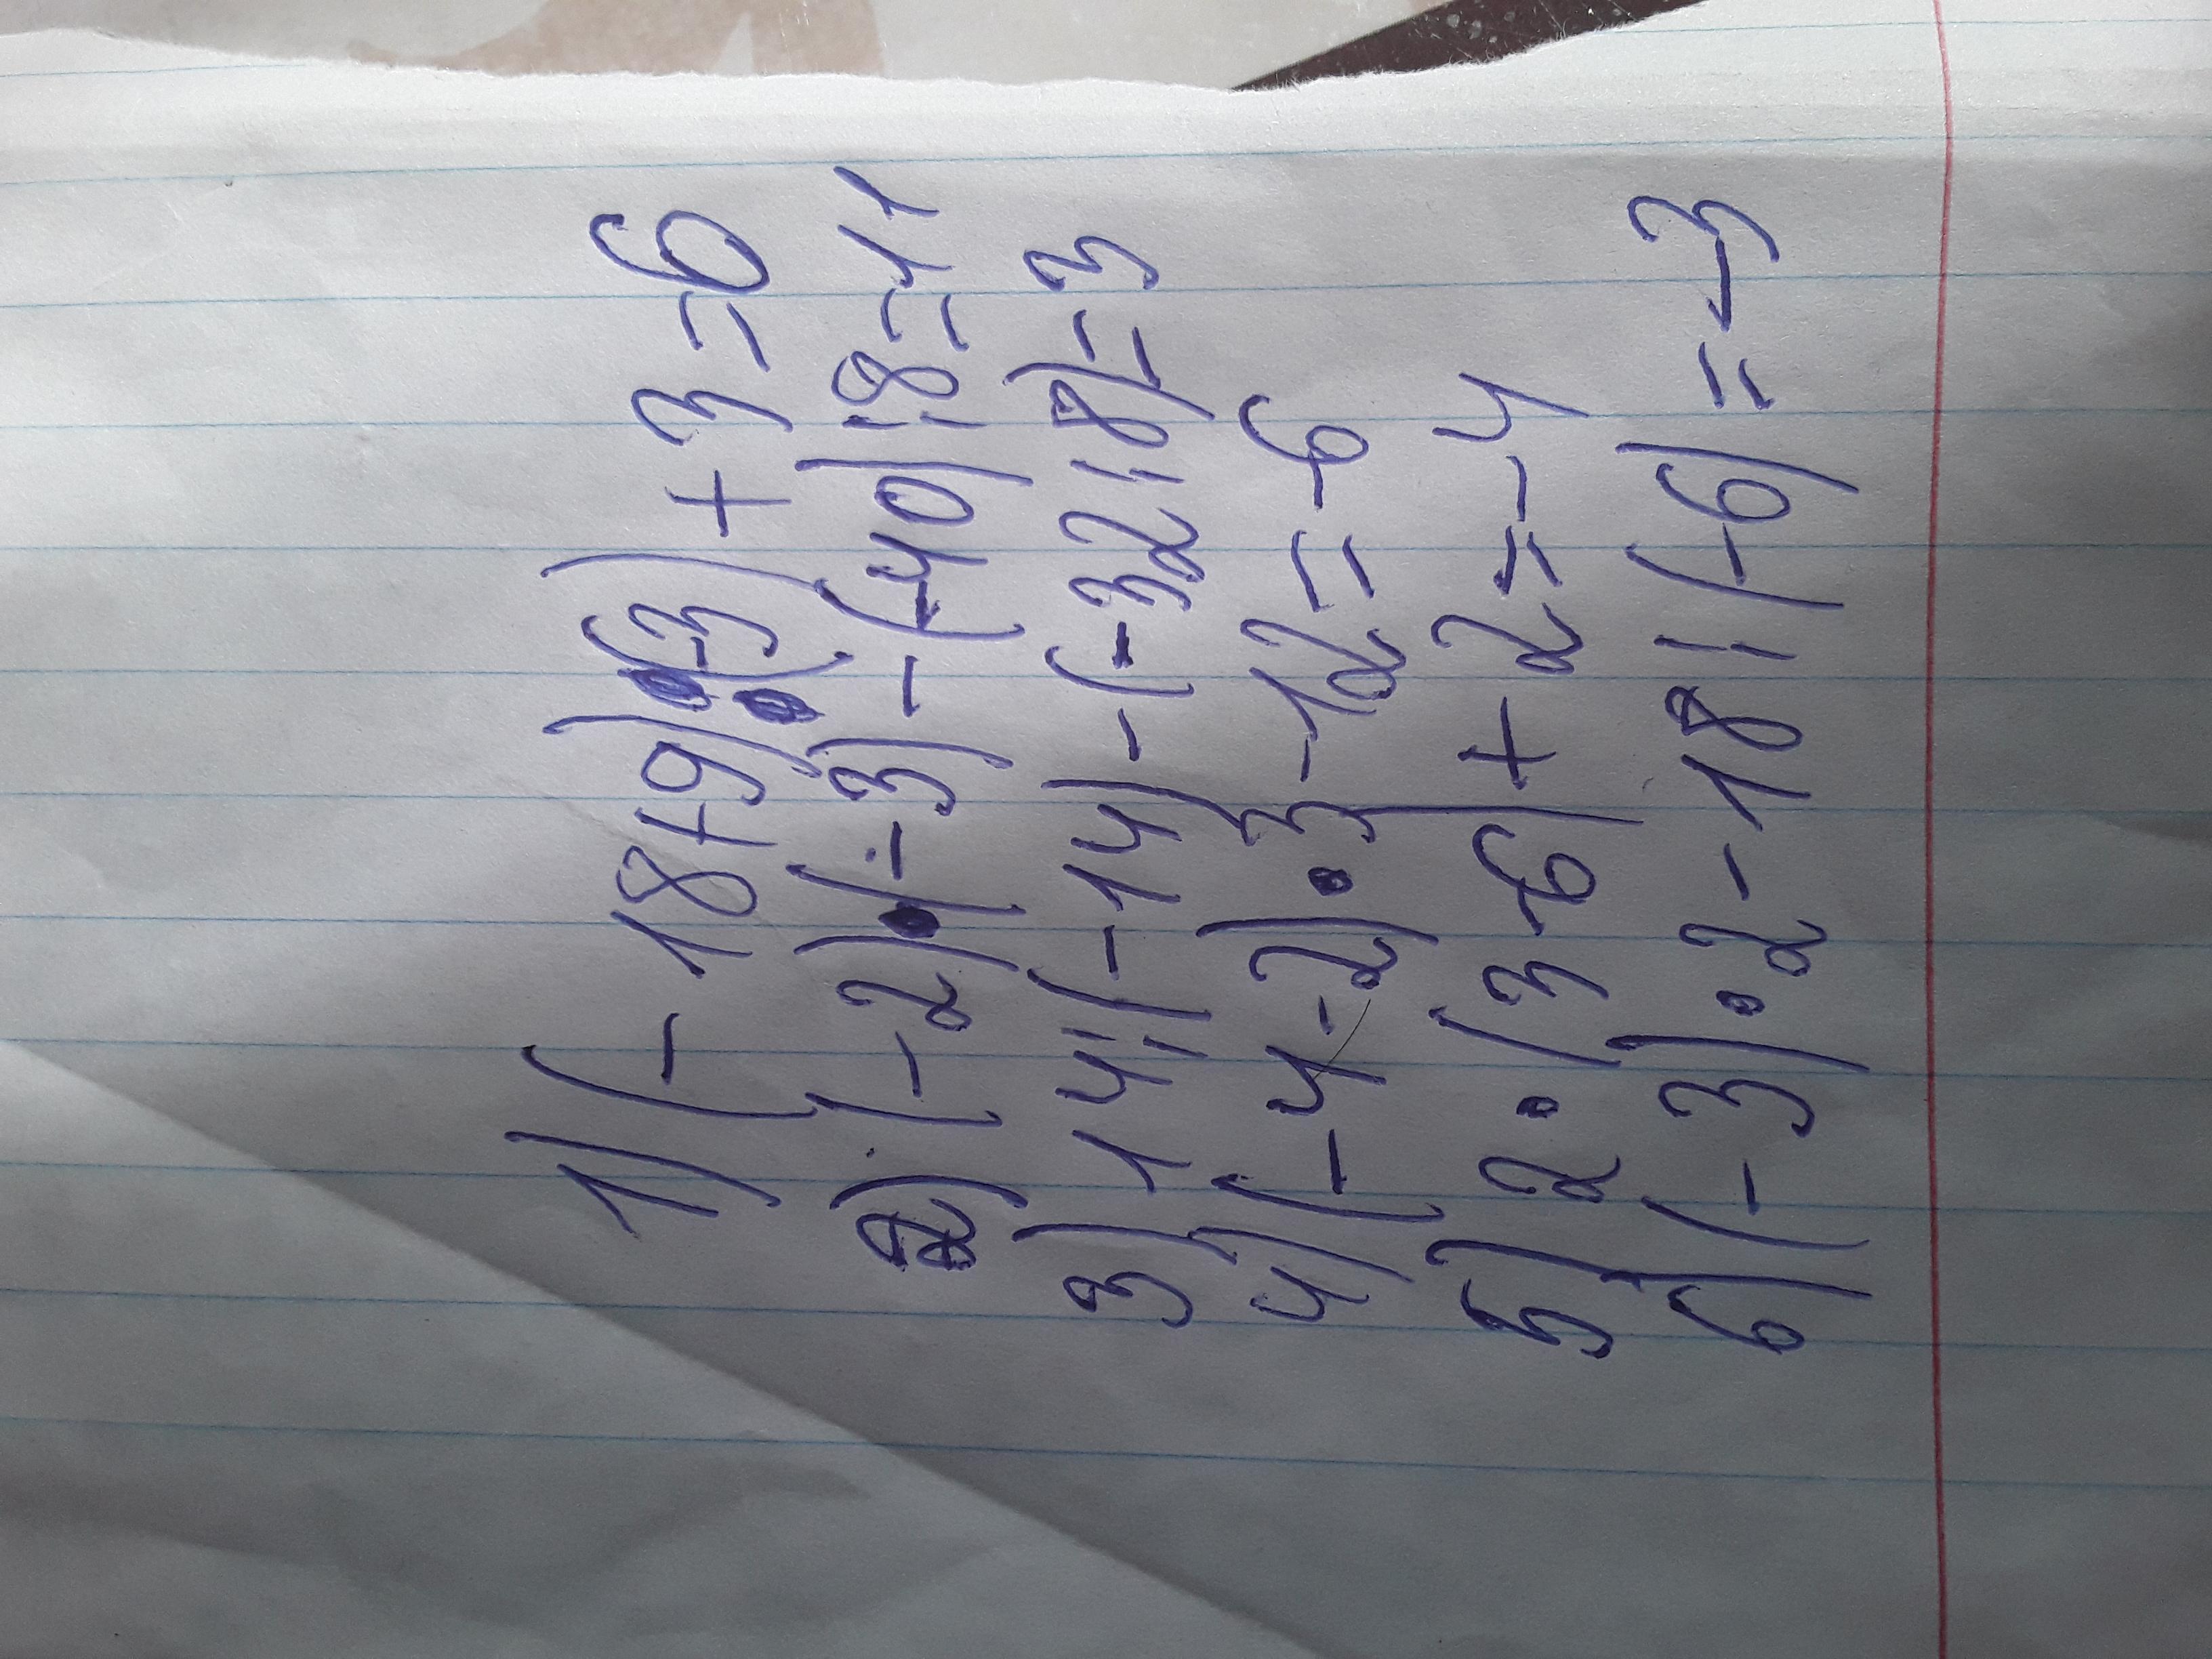 1) (-18+9):(-3)+3=6
2) (-2)·(-3)-(-40):8=11
3) 14:(-14)-(-32:8)=3
4) (-4-2)·3-12=-6
5) 2·(3-6)+2=-4
6) (-3)·2-18:(-6)=-3